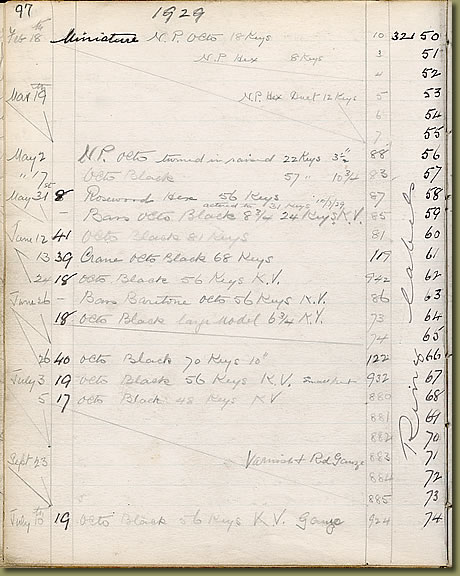 97 1929
Feb 18 Miniature N.P. Octo 18 Keys 10 321 50
N.P. Hex 8 Keys 3 51
4 52
Mar 19 N.P. Hex Duet 12 Keys 5 53
6 54
7 55
May 2 N.P. Octo turned in raised 22 Keys 3½" 88 56
" 17 Octo Black 57 " 10¾ 83 57
May 31st 8 Rosewood Hex 56 Keys 87 58
altered to 31 Keys
— Bass Octo Black 8¾ 24 Keys K.V. 85 59
June 12 41 Octo Black 81 Keys 81 60
13 39 Crane Octo Black 68 Keys 119 61
24 18 Octo Black 56 Keys K.V. 942 62
June 26 — Bass Baritone Octo 56 Keys K.V. 86 63
18 Octo Black large model 6¾ K.V. 73 64
74 65
26 40 Octo Black 70 Keys 10" 122 66
July 3 19 Octo Black 56 Keys K.V. 932 67
5 17 Octo Black 48 Keys KV 880 68
881 69
882 70
Sept 23 Varnish & Rd Gauze 883 71
884 72
885 73
July 19 Octo Black 56 Keys K.V. Gauze 924 74
Rims Labels